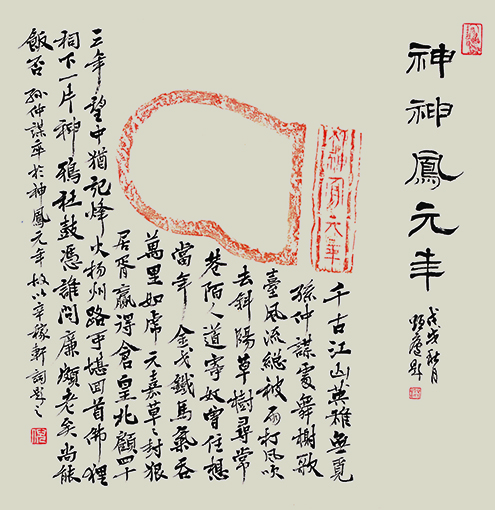 神神鳳元年
戊戌秋月
神鳳元年
千古江山英雄無覓
孫仲謀處舞榭歌
臺風流總被雨打風吹
去斜陽草樹尋常
巷陌人道寄奴曾住想
當年金戈鐵馬氣吞
萬里如虎元嘉草草封狼
居胥贏得倉皇北顧四十
三年望中猶記烽火揚州路可堪回首佛狸
祠下一片神鴉社鼓憑誰問廉頗老矣尚能
飯否孫仲謀卒於神鳳元年故以辛稼軒詞題之